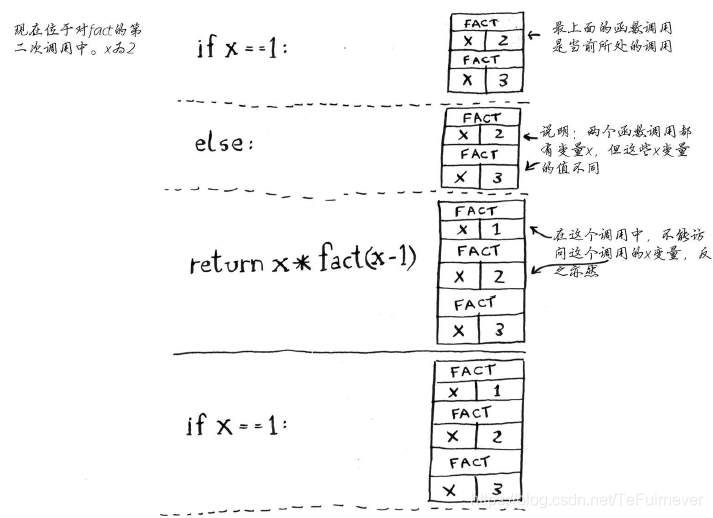 现在位于对fact的第
二次调用中。x为2
if x==1:
FACT
x 2
FACT
x 3
最上面的函数调用
是当前所处的调用
else:
FACT
x 2
FACT
x 3
说明：两个函数调用都
有变量x，但这些x变量
的值不同
return x*fact(x-1)
FACT
x 1
FACT
x 2
FACT
x 3
在这个调用中，不能访
问这个调用的x变量，反
之亦然
if x==1:
FACT
x 1
FACT
x 2
FACT
x 3
https://blog.csdn.net/TeFuirnever